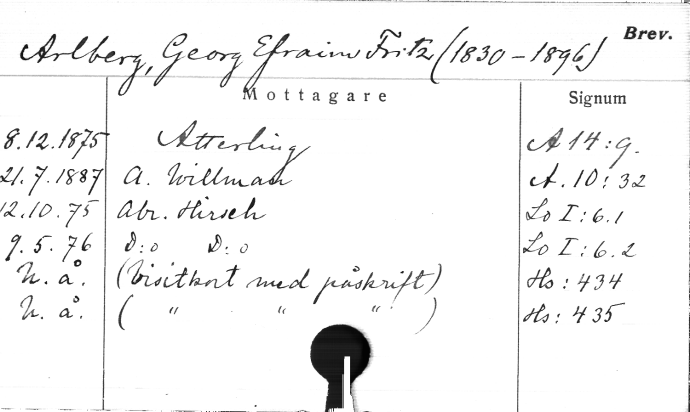 Brev.
Arlberg, Georg Efraim Fritz (1830-1896)
Mottagare Signum
8.12.1875 Atterling A 14:9.
21.7.1887 A. Willman A. 10:32
12.10.75 Abr. Hirsch Lo I:6.1
9.5.76 D:o D:o Lo I:6.2
U. å. (Visitkort med påskrift) Hs: 434
U. å. ( " " " ) Hs: 435